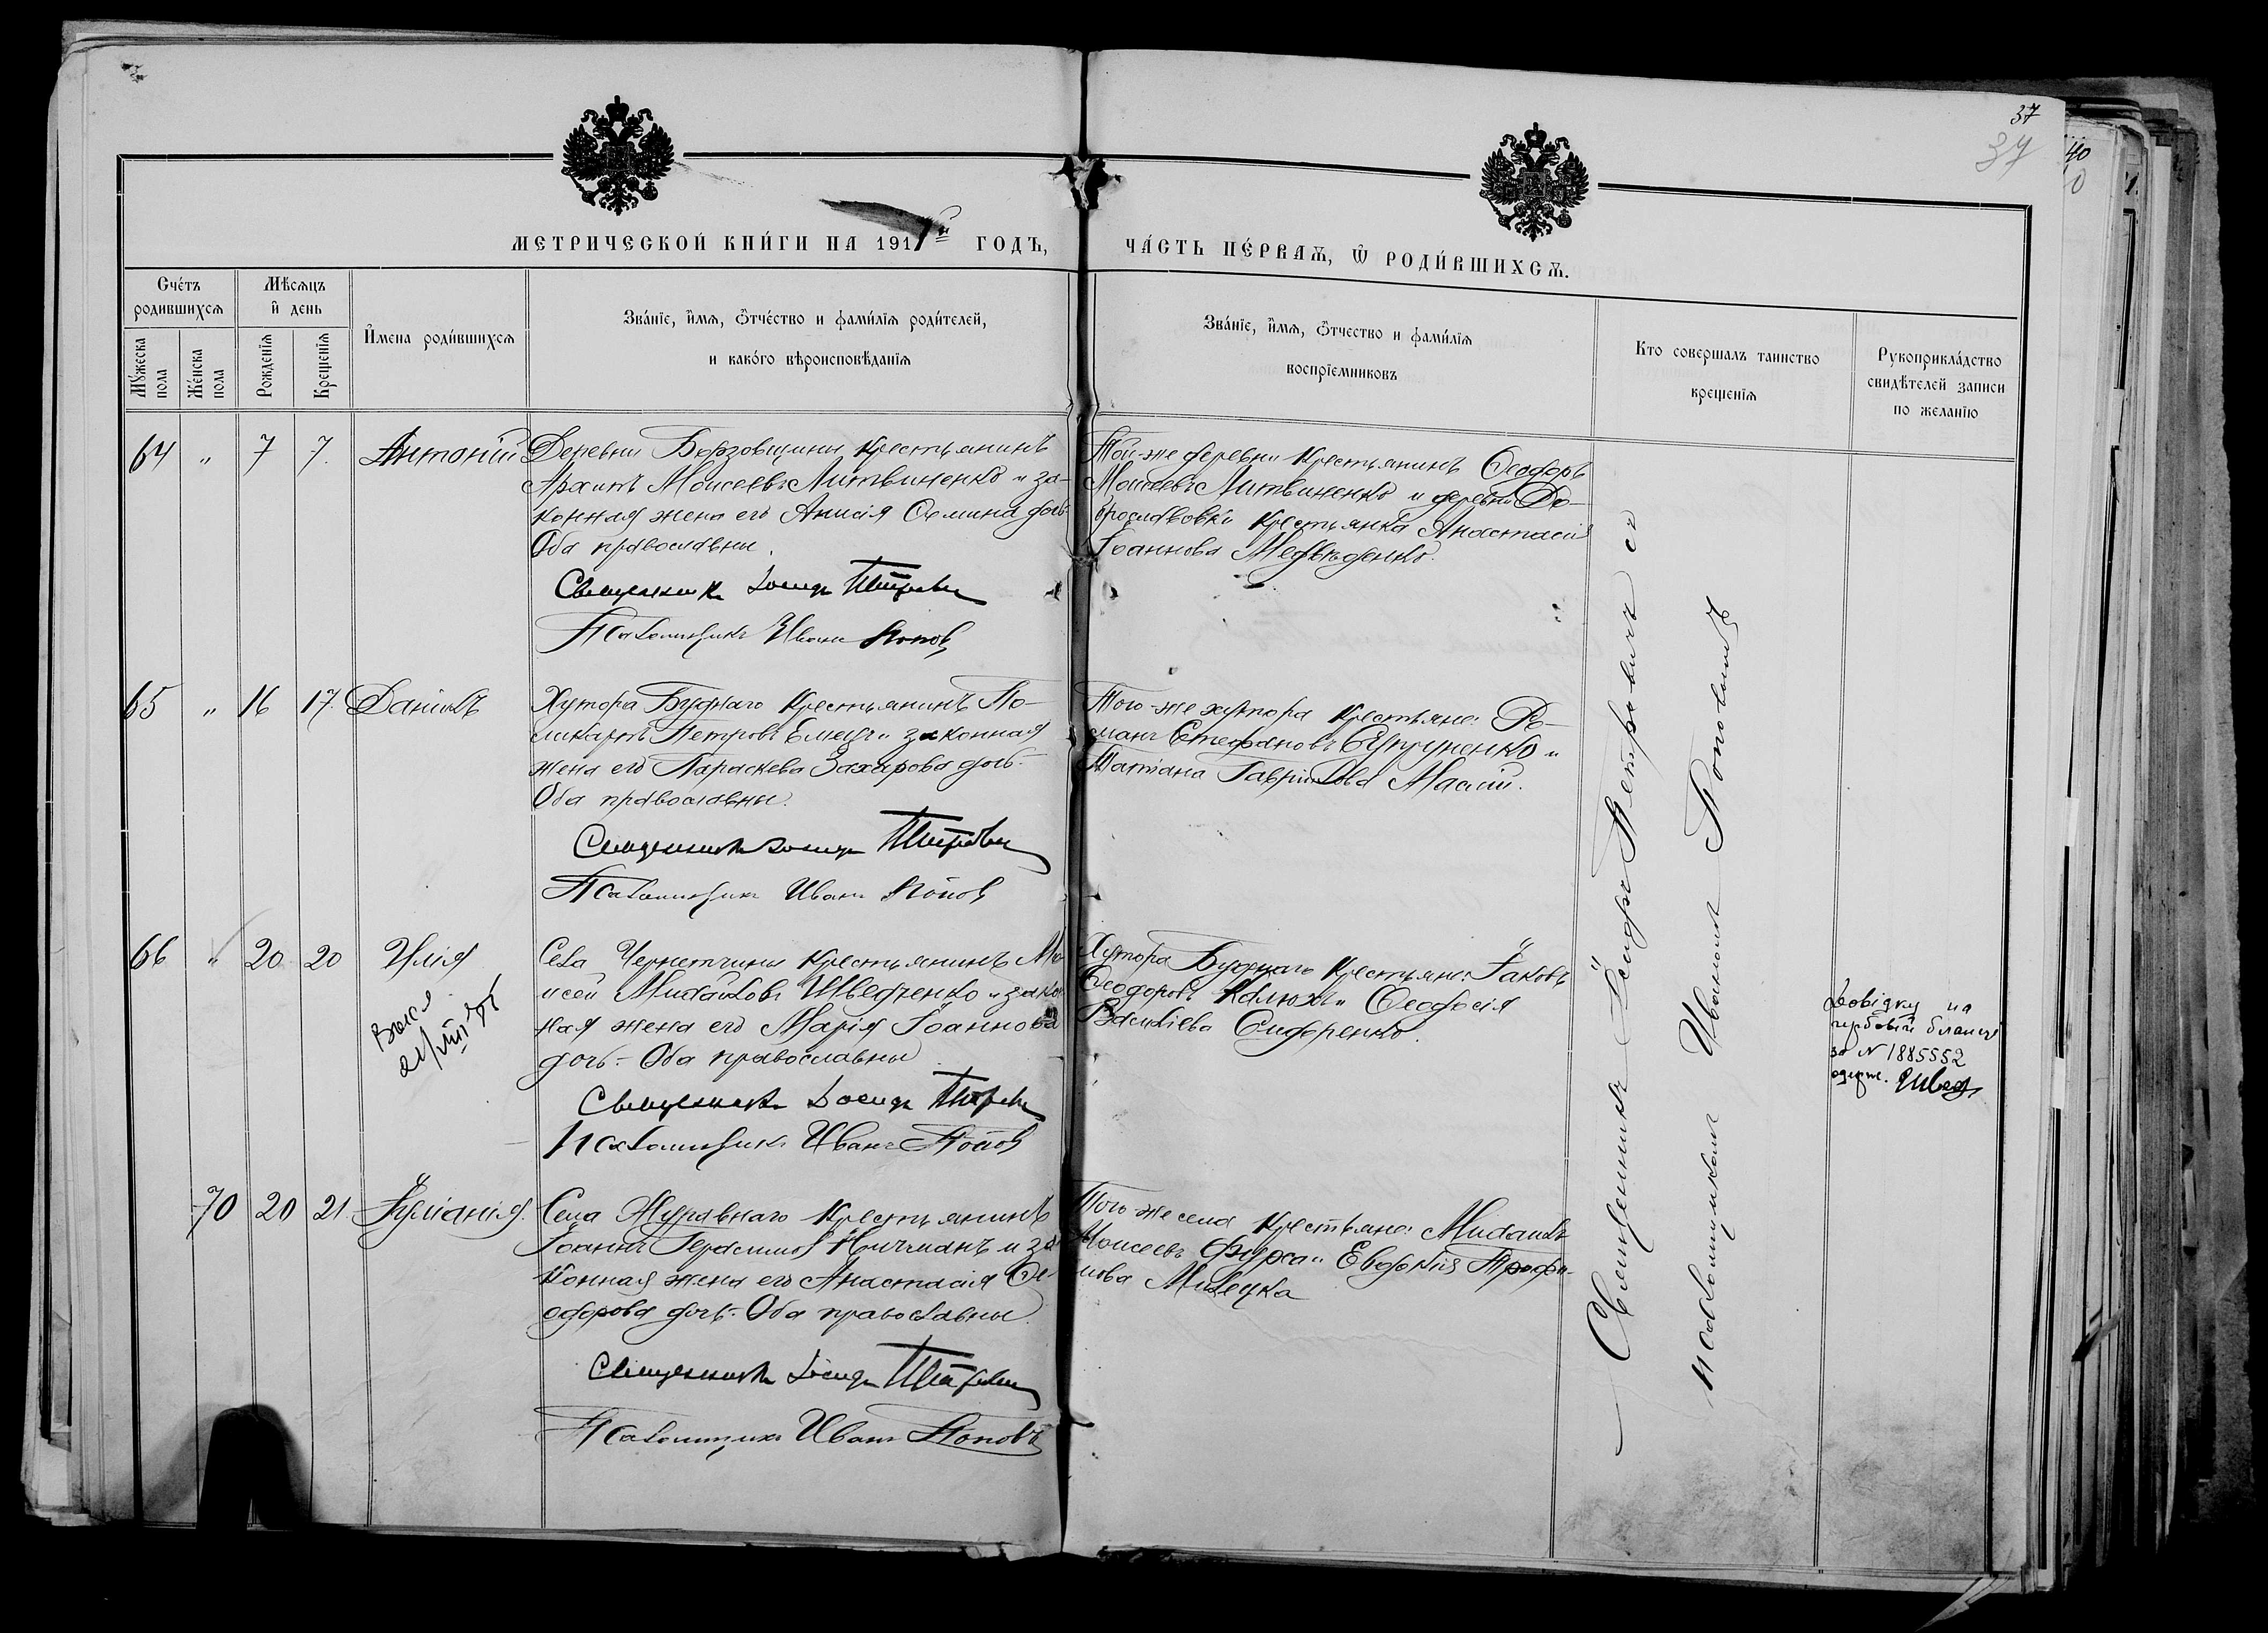 37
37
40
МЕТРИЧЕСКОЙ КНИ́ГИ НА 1911й ГОДЪ,
ЧА́СТЬ ПЕ́РВАѦ, Ѿ РОДИ́ВШИХСѦ.
Сче́тъ родившихсѧ
Мѣсѧцъ и день
Мꙋ́жеска пола
Же́нска пола
Рожденїѧ
Крещенїѧ
И҆мена роди́вшихсѧ
Зва́нїе, и҆мѧ, ѿче́ство и фами́лїѧ роди́телей,
и како́го вѣроисповѣ́данїѧ
Зва́нїе, и҆мѧ, ѿчество и фами́лїѧ
воспрїемниковъ
Кто совершалъ таинство
крещенїѧ
Рукоприкла́дство
свидѣтелей записи
по желанїю
64 " 7 7. Антоній
Деревни Борзовщины крестьянинъ
Архипъ Моисеевъ Литвиненко и за-
конная жена его Анисія Семина дочь.
Оба православны.
Священникъ Іосифъ Петровичъ
Псаломщикъ Иванъ Попов
Той-же деревни крестьянинъ Ѳеодоръ
Моисеевъ Литвиненко и деревни До-
брославовки крестьянка Анастасія
Іоаннова Медвѣденко.
65 " 16 17. Даніилъ
Хутора Буднаго крестьянинъ По-
ликарпъ Петровъ Емецъ и законная
жена его Параскева Захарова дочь.
Оба православны.
Священникъ Іосифъ Петровичъ
Псаломщикъ Иванъ Попов
Того-же хутора крестьяне: Ро-
манъ Стефановъ Супруненко и
Татіана Гавріилова Маслій.
66 " 20 20 Илія
Села Чернетчины крестьянинъ Мо-
исей Михаиловъ Шведченко и закон-
ная жена его Марія Іоаннова
дочь. Оба православны
Священникъ Іосифъ Петровичъ
Псаломщикъ Иванъ Попов
Хутора Буднаго крестьяне: Іаковъ
Ѳеодоровъ Калюхъ и Ѳеодосія
Василіева Сидоренко.
Довідку на
гербовій бланці
за N 1885552
одерж.
70 20 21. Іуліанія.
Села Журавнаго крестьянинъ
Іоаннъ Герасимов Кичманъ и за-
конная жена его Анастасія Ѳе-
одорова дочь. Оба православны.
Священникъ Іосифъ Петровичъ
Псаломщикъ Иванъ Поповъ
Того же села крестьяне: Михаилъ
Моисеевъ Фурса и Евдокія Трофи-
мова Милецка
Священникъ Іосифъ Петровичъ съ
псаломщикомъ Иваномъ Поповымъ